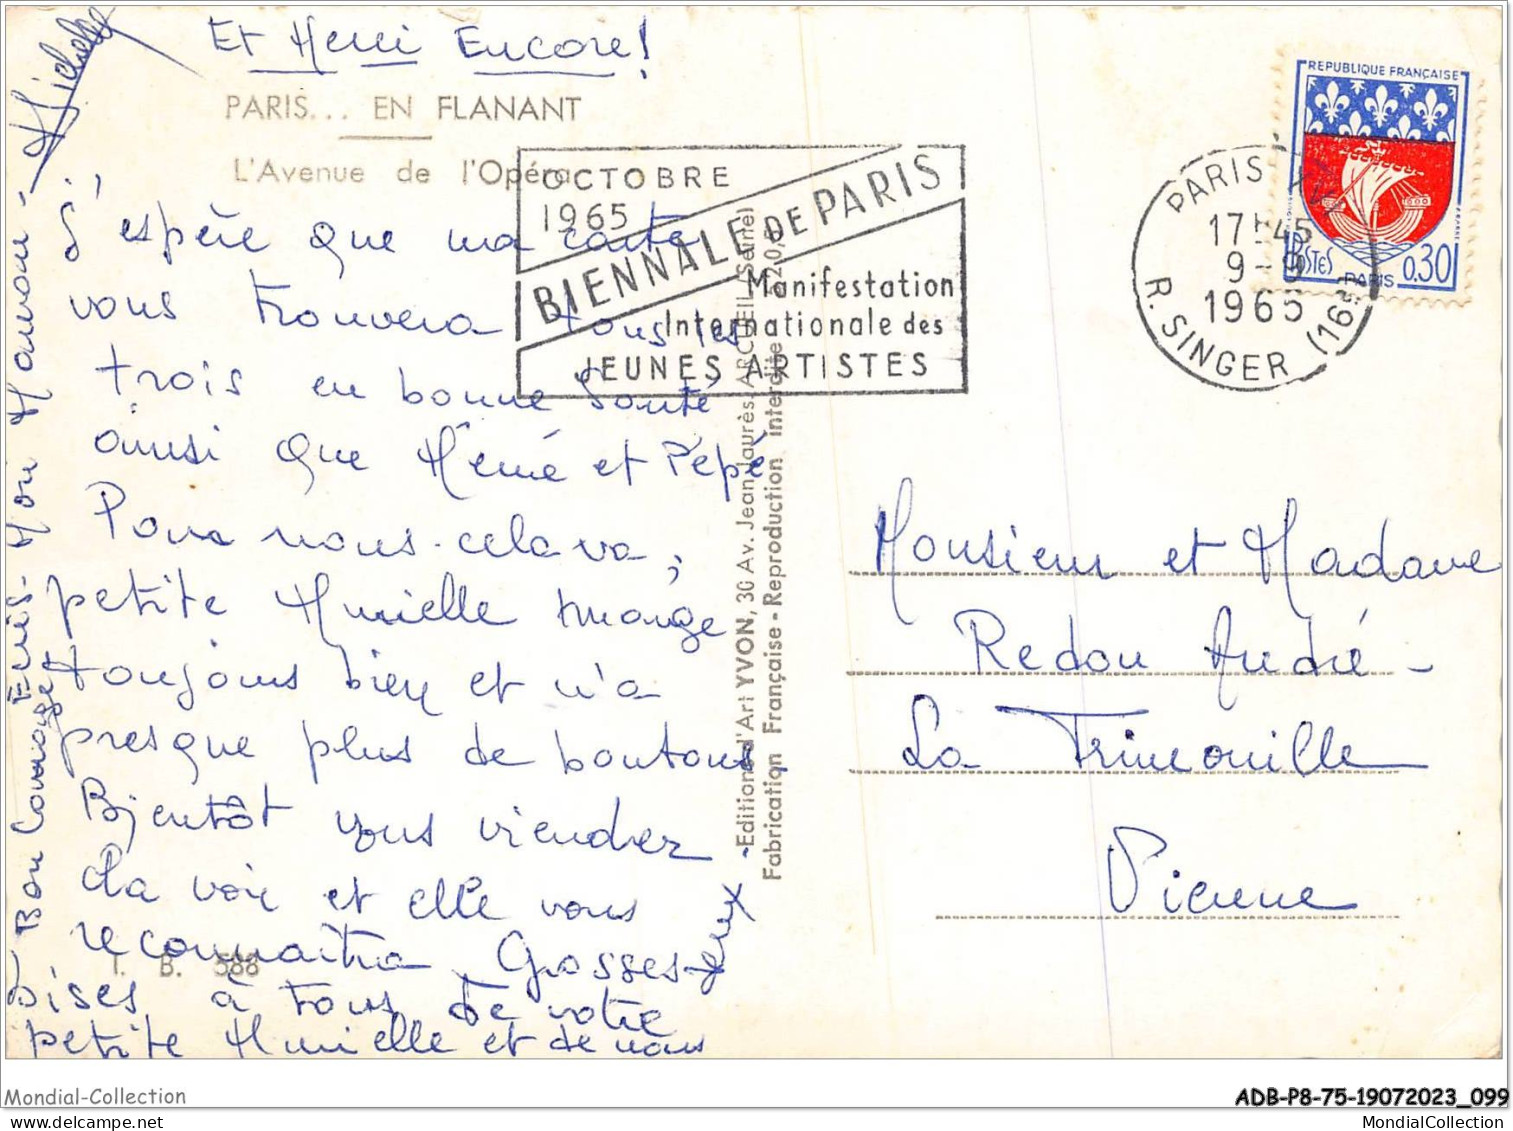 Et Merci Encore!
PARIS... EN FLANANT
L'Avenue de l'Opéra
J'espère que ma carte
vous trouvera tous les
trois en bonne santé
ainsi que Mémé et Pépé
Pour nous cela va,
petite Murielle mange
toujours bien et n'a
presque plus de boutons.
Bientôt vous viendrez
la voir et elle vous
reconnaitra. Grosses
bises à tous deux de votre
petite Murielle et de nous
Bon Courage
Mon Maman - Michelle
I. B. 588
OCTOBRE
1965
BIENNALE DE PARIS
Manifestation
Internationale des
JEUNES ARTISTES
-Editions d'Art YVON, 30 Av. Jean Jaurès, ARCUEIL (Seine)
Fabrication Française - Reproduction interdite
REPUBLIQUE FRANÇAISE
POSTES
PARIS
0,30
PARIS XVI
17H45
9-9
1965
R. SINGER (16E)
Monsieur et Madame
Redon André -
La Trimouille
Vienne
Mondial-Collection
ADB-P8-75-19072023_099
MondialCollection